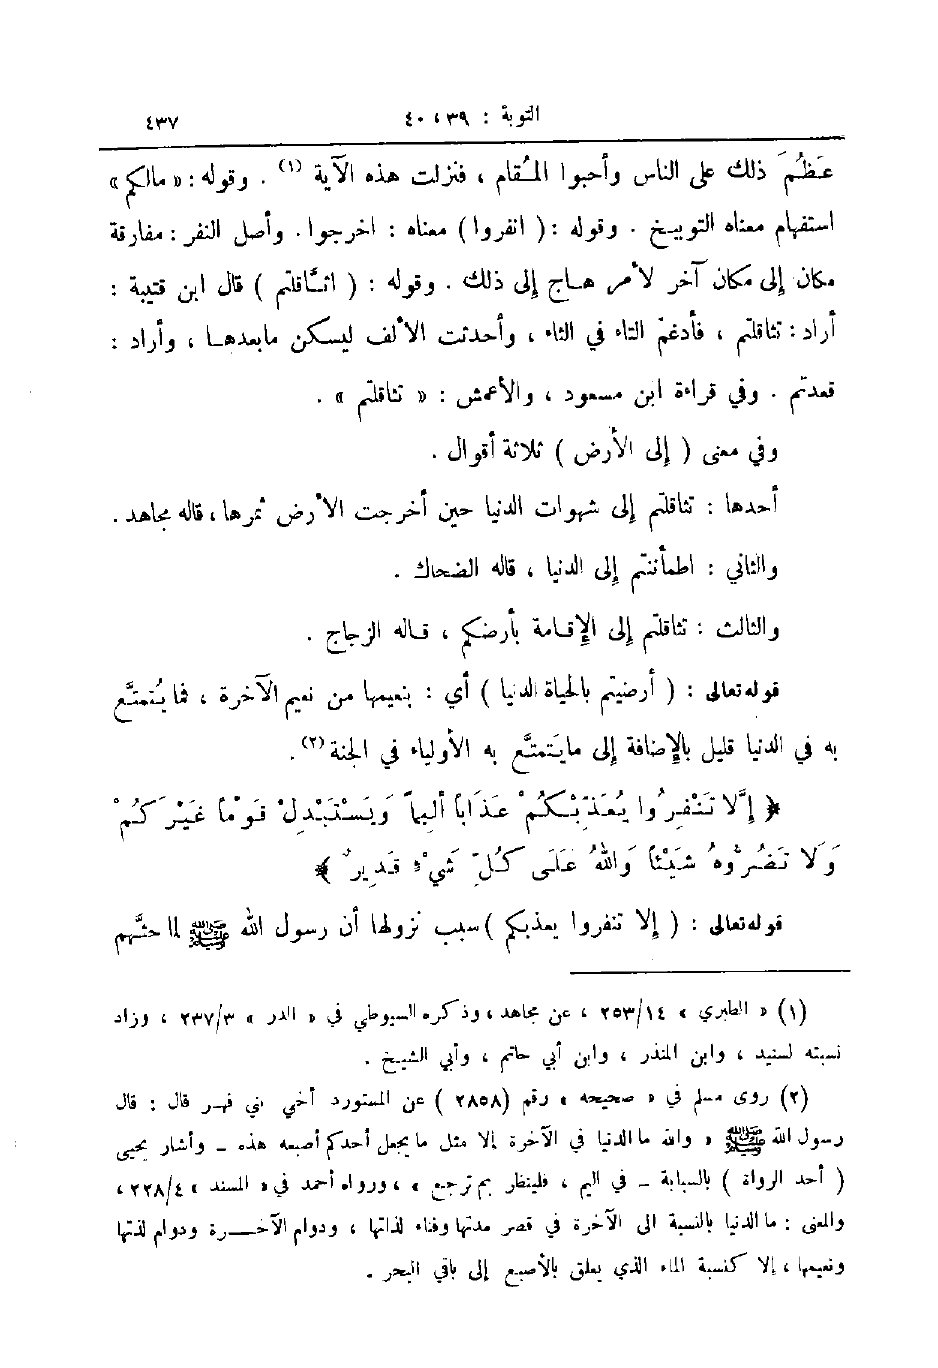 التوبة : ٣٩ ، ٤٠ ٤٣٧
عَظُمَ ذلك على الناس وأحبوا المُقام ، فنزلت هذه الآية (١) . وقوله : « مالكم »
استفهام معناه التوبيخ . وقوله : ( انفروا ) معناه : اخرجوا . وأصل النفر : مفارقة
مكان إلى مكان آخر لأمر هاج إلى ذلك . وقوله : ( اثَّاقلتم ) قال ابن قتيبة :
أراد : تثاقلتم ، فأدغم التاء في الثاء ، وأحدثت الألف ليسكن مابعدها ، وأراد :
قعدتم . وفي قراءة ابن مسعود ، والأعمش : « تثاقلتم » .
وفي معنى ( إلى الأرض ) ثلاثة أقوال .
أحدها : تثاقلتم إلى شهوات الدنيا حين أخرجت الأرض ثمرها ، قاله مجاهد .
والثاني : اطمأننتم إلى الدنيا ، قاله الضحاك .
والثالث : تثاقلتم إلى الإقامة بأرضكم ، قاله الزجاج .
قوله تعالى : ( أرضيتم بالحياة الدنيا ) أي : بنعيمها من نعيم الآخرة ، فما يُتمتَّع
به في الدنيا قليل بالإضافة إلى مايَتمتَّع به الأولياء في الجنة (٢) .
﴿ إِلَّا تَنْفِرُوا يُعَذِّبْكُمْ عَذَاباً أَلِيماً وَيَسْتَبْدِلْ قَوْماً غَيْرَكُمْ
وَلَا تَضُرُّوهُ شَيْئاً وَاللهُ عَلَى كُلِّ شَيْءٍ قَدِيرٌ ﴾
قوله تعالى : ( إلا تنفروا يعذبكم ) سبب نزولها أن رسول الله ﷺ لما حثَّهم
(١) « الطبري » ٢٥٣/١٤ ، عن مجاهد ، وذكره السيوطي في « الدر » ٢٣٧/٣ ، وزاد
نسبته لسنيد ، وابن المنذر ، وابن أبي حاتم ، وأبي الشيخ .
(٢) روى مسلم في « صحيحه » رقم (٢٨٥٨ ) عن المستورد أخي بني فهر قال : قال
رسول الله ﷺ « والله ما الدنيا في الآخرة إلا مثل ما يجعل أحدكم أصبعه هذه ـ وأشار يحيى
( أحد الرواة ) بالسبابة ـ في اليم ، فلينظر بم ترجع » ، ورواه أحمد في « المسند » ٢٢٨/٤ ،
والمعنى : ما الدنيا بالنسبة الى الآخرة في قصر مدتها وفناء لذاتها ، ودوام الآخرة ودوام لذتها
ونعيمها ، إلا كنسبة الماء الذي يعلق بالأصبع إلى باقي البحر .